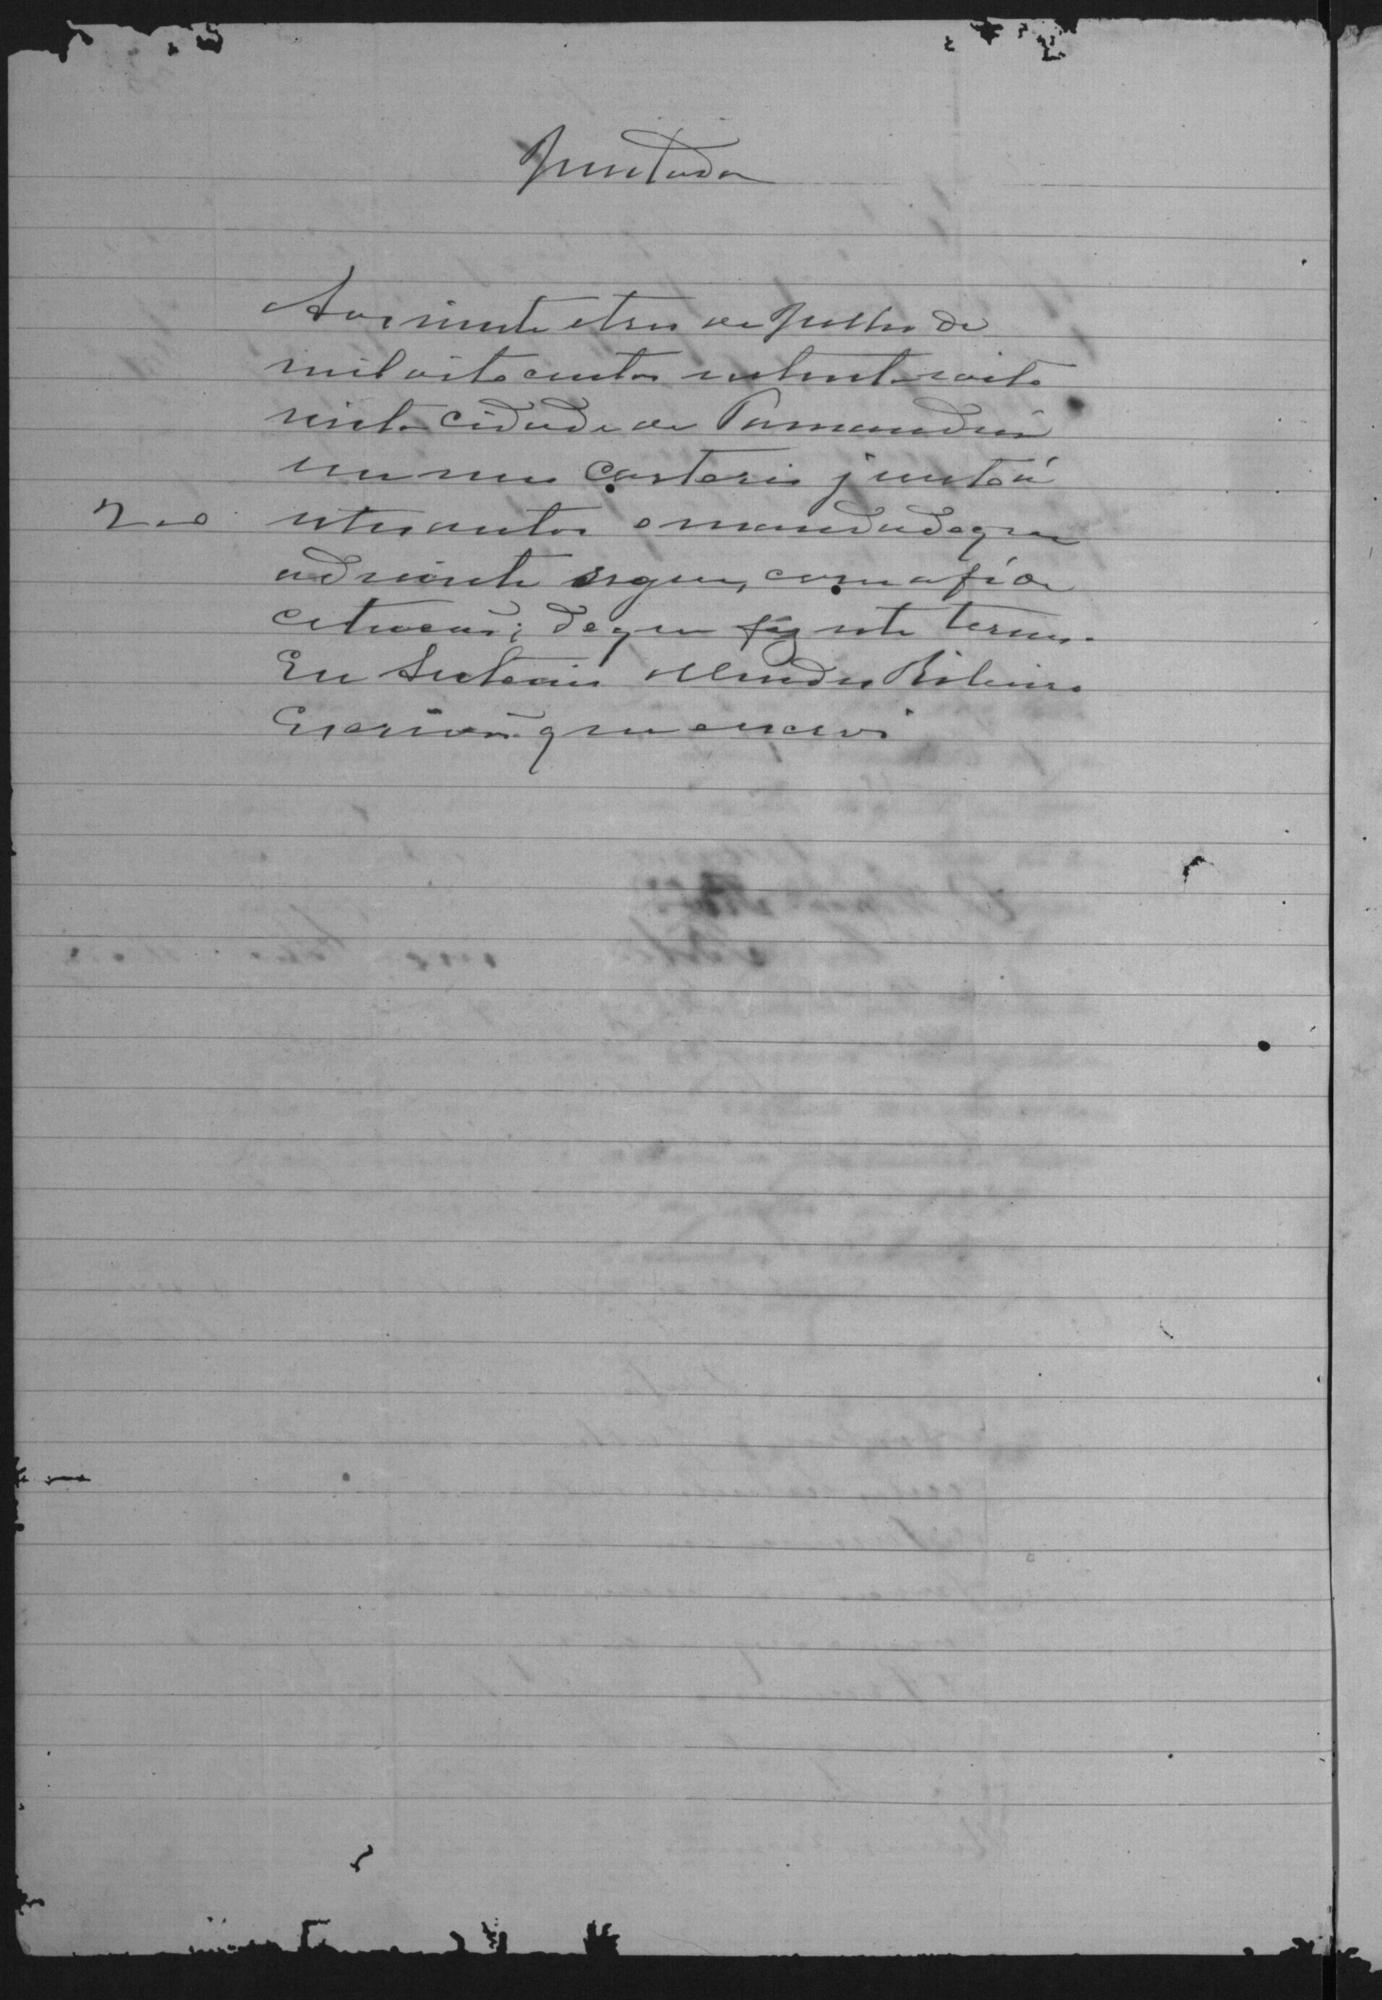 Juntada
Aos vinte e tres de Julho de
mil oito centos setenta e oito
nesta cidade de Tamanduá
em meu cartorio junto á
200 estes autos o mandado que
adiante segue, com a fé da
citação; do que fiz este termo.
Eu Antonio Mendes Ribeiro
Escrivão que escrevi